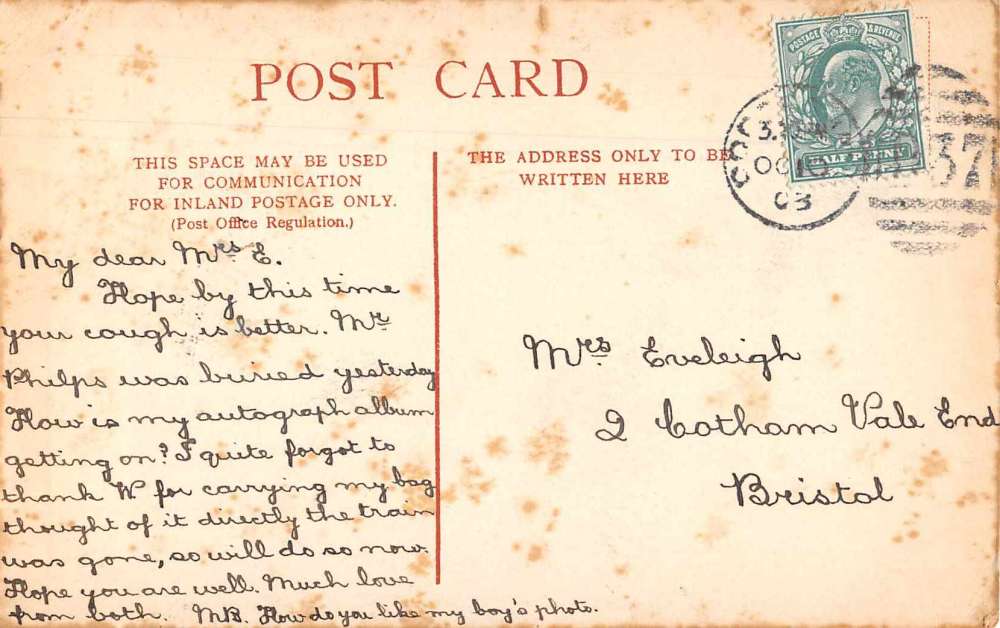 POST CARD
THIS SPACE MAY BE USED
FOR COMMUNICATION
FOR INLAND POSTAGE ONLY.
(Post Office Regulation.)
THE ADDRESS ONLY TO BE
WRITTEN HERE
POSTAGE & REVENUE
HALF PENNY
OC
03
37
My dear Mrs E.
Hope by this time
your cough is better. Mr
Philps was buried yesterday
How is my autograph album
getting on? I quite forgot to
thank W for carrying my bag
thought of it directly the train
was gone, so will do so now.
Hope you are well. Much love
from both. MB. How do you like my boy's photo.
Mrs Eveleigh
2 Cotham Vale End
Bristol